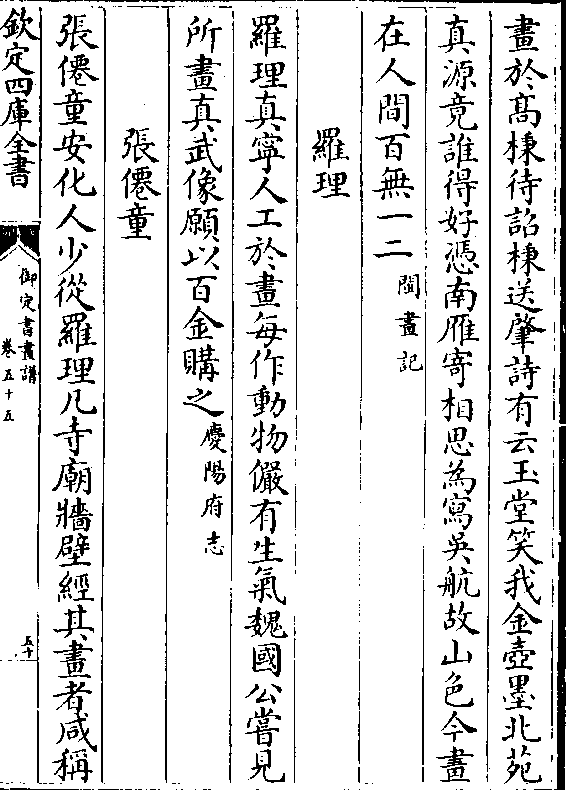 畫於髙棅待詔棅送肇詩有云玉堂笑我金壺墨北苑
真源竟誰得好憑南雁寄相思為寫吳航故山色今畫
在人間百無一二閩畫記
羅理
羅理真寧人工於畫每作動物儼有生氣魏國公嘗見
所畫真武像願以百金購之慶陽府志
張僊童
張僊童安化人少從羅理凡寺廟牆壁經其畫者咸稱
欽定四庫全書
御定書畫譜
卷五十五
五十